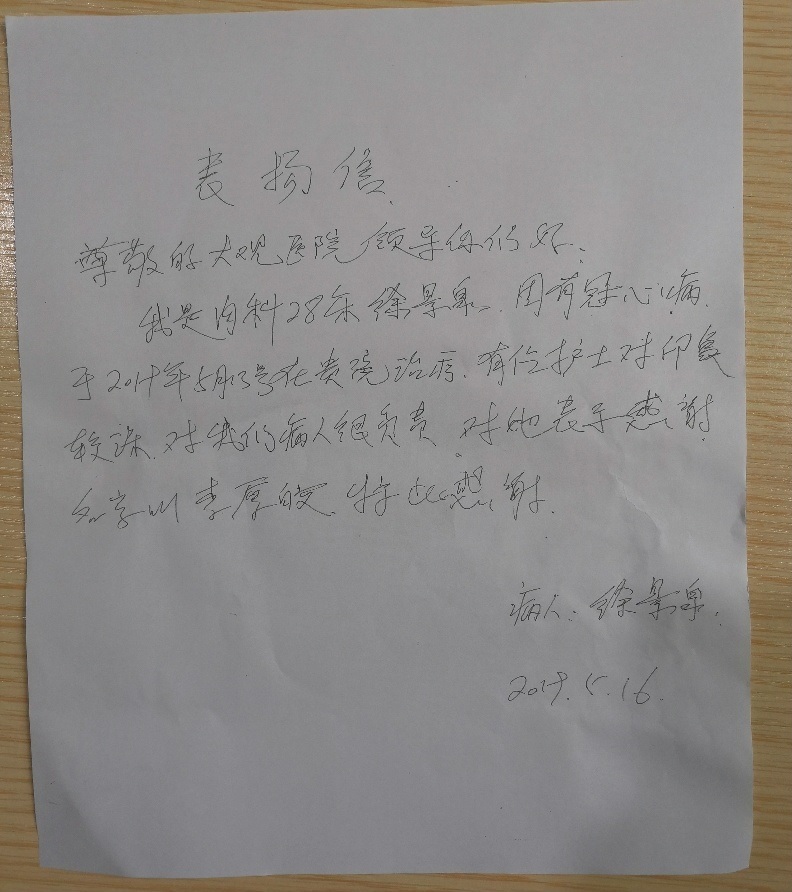 表扬信
尊敬的大观医院领导你们好.
我是内科28床徐景泉. 因有冠心病.
于2019年5月13号在贵院治疗. 有位护士对印象
较深. 对我们病人很负责. 对她表示感谢
名字叫李厚皎. 特此感谢.
病人: 徐景泉.
2019.5.16.